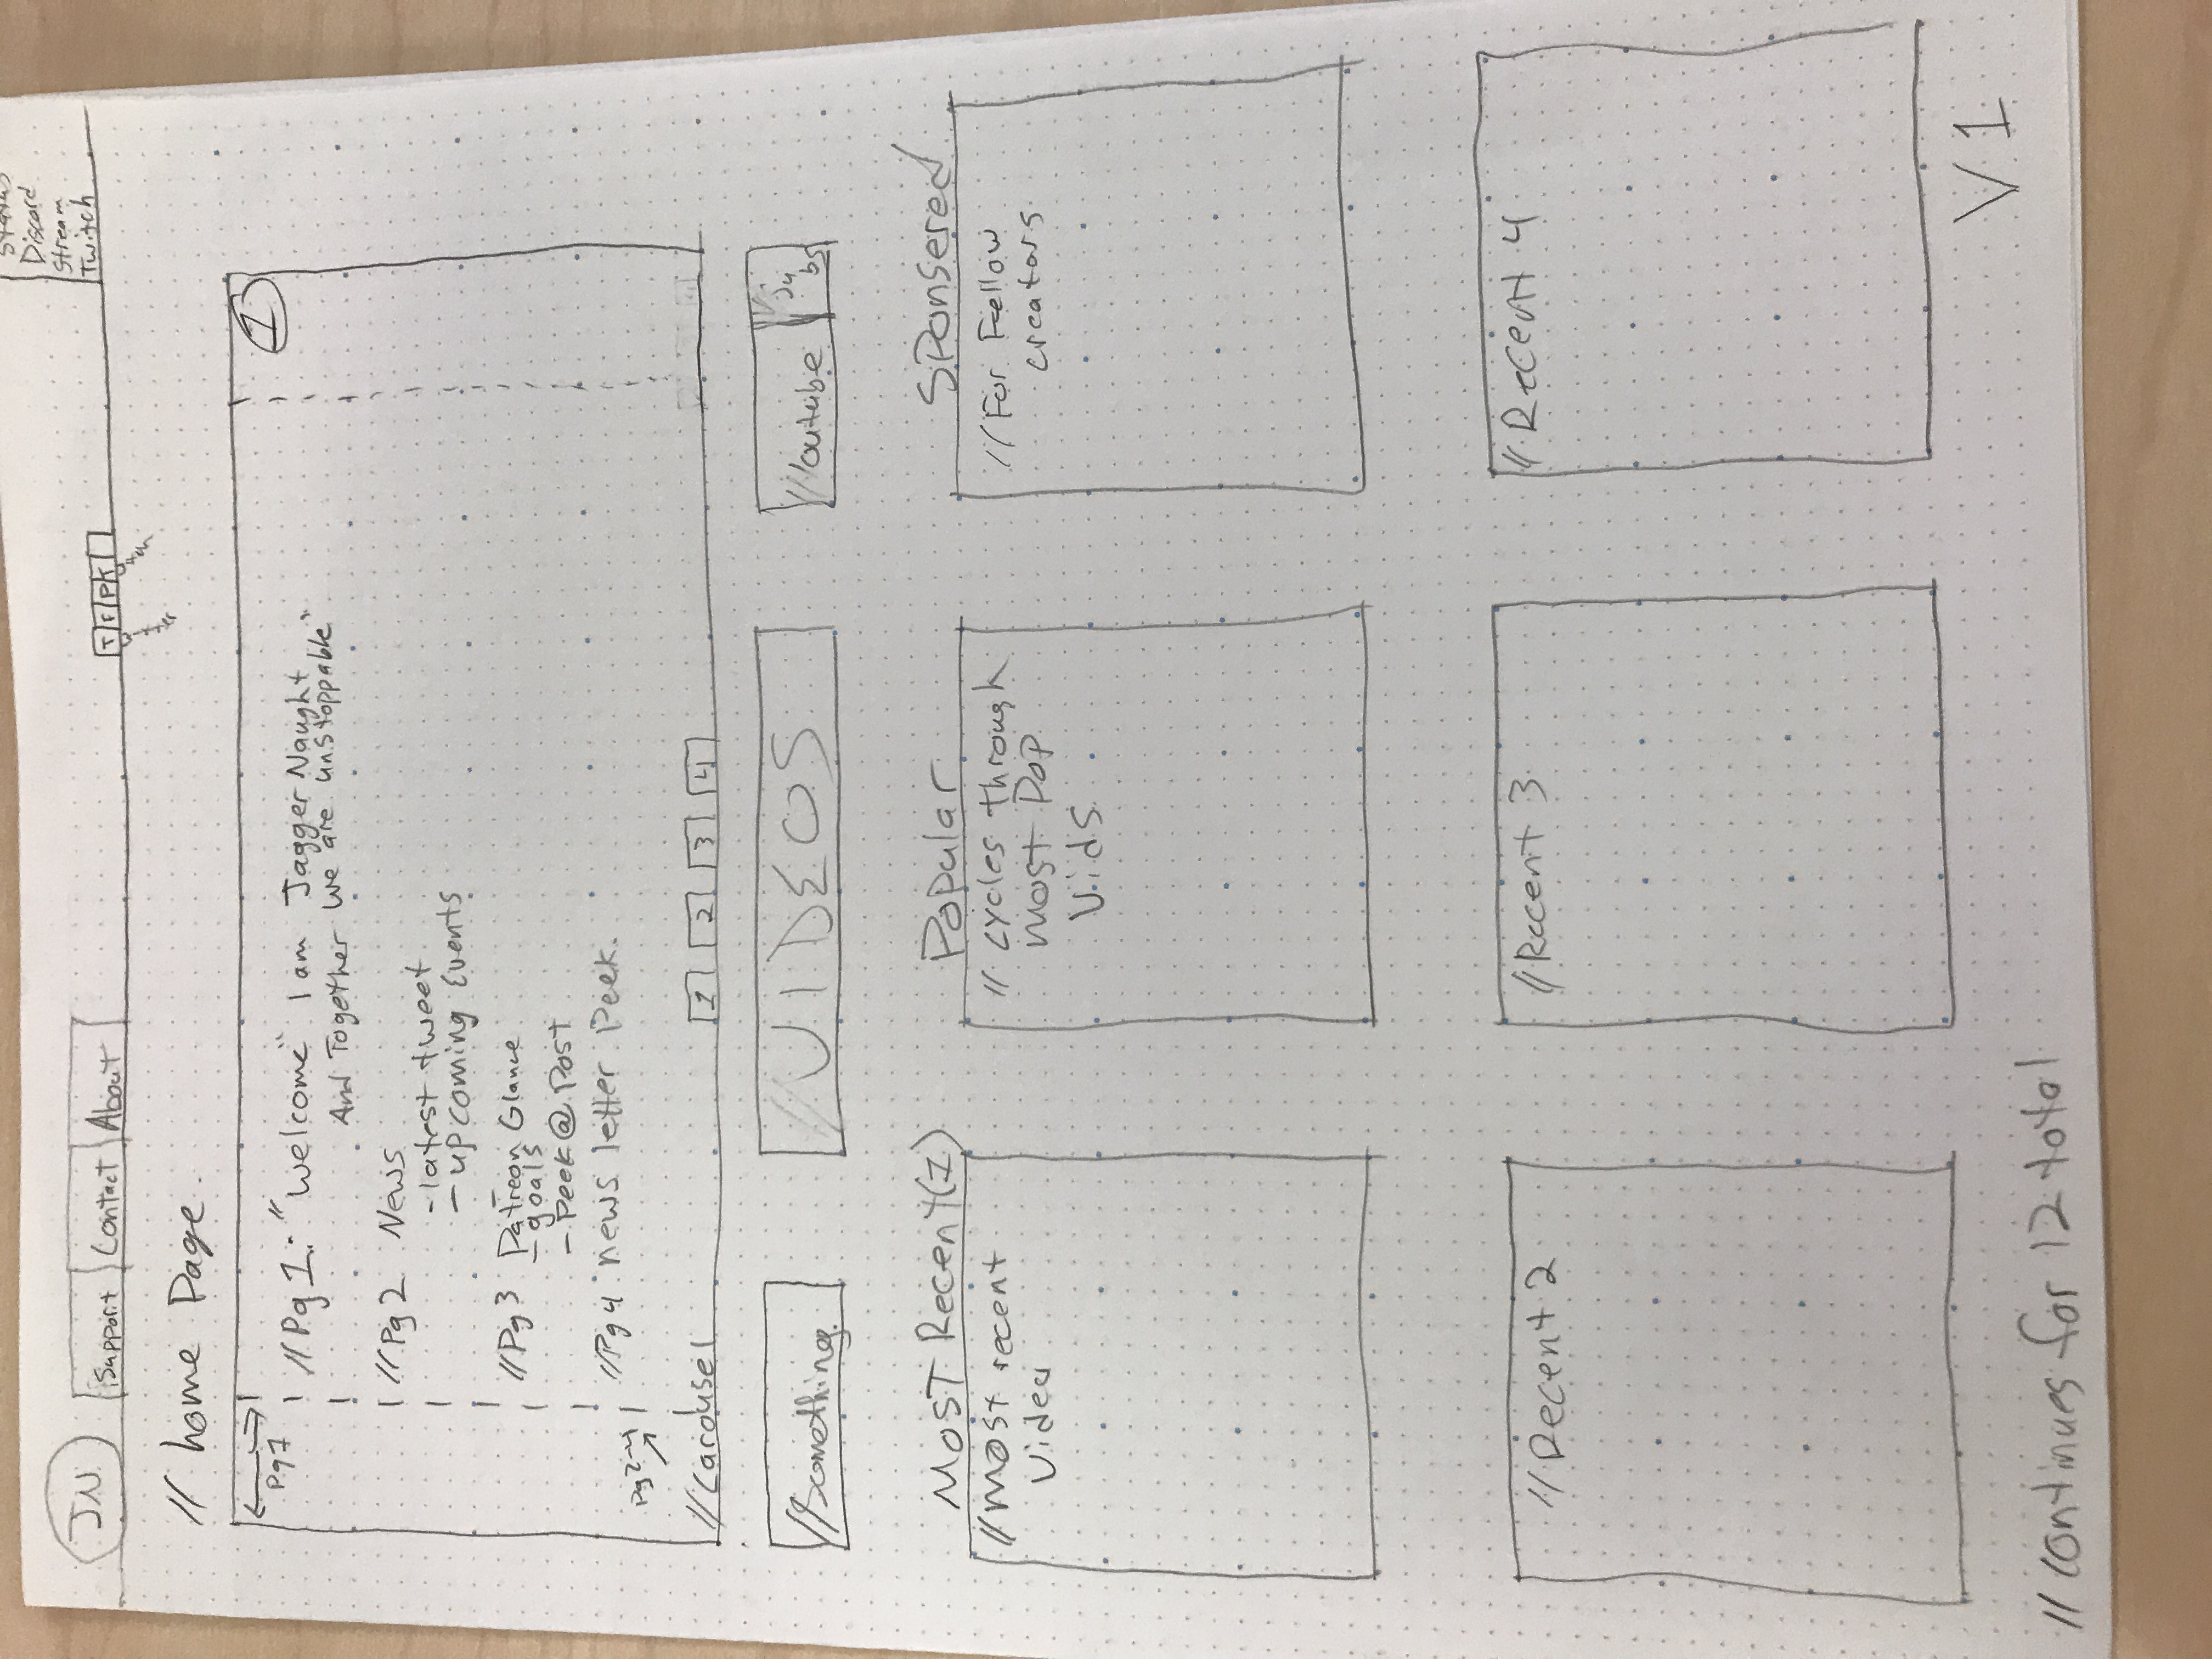 Status
Discord
Stream
Twitch
JN
Support Contact About
T F P T
witter
// home Page
Pg1
1
// Pg 1: "Welcome" I am Jagger Naught
And Together We are unstoppable"
// Pg 2 News
- latest tweet
- upcoming Events
// Pg 3 Patreon Glance
- goals
- Peek @ Post
// Pg 4 news letter Peek.
Pg 2-4
// Carousel
1 2 3 4
// Something
// VIDEOS
// Youtube
Subs
Most Recent (1)
Popular
Sponsered
// most recent
Video
// cycles through
most Pop
Vids
// For Fellow
creators
// Recent 2
// Recent 3
// Recent 4
V 1
// continues for 12 total